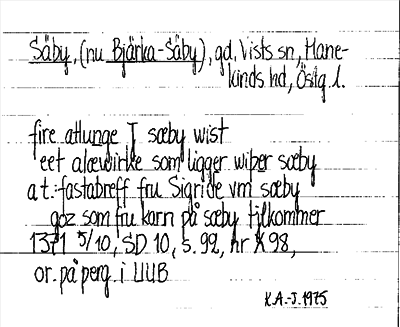 Säby, (nu Bjärka-Säby), gd, Vists sn, Hane-
kinds hd, Östg l.
fire atlunge J sæby wist
eet alæwirke som ligger wiþer sæby
a t.: fastabreff fru Sigride vm sæby
goz som fru karn på sæby tilkommer
1371 5/10, SD 10, s. 92, nr X 98,
or. på perg. i UUB
K.A.-J. 1975